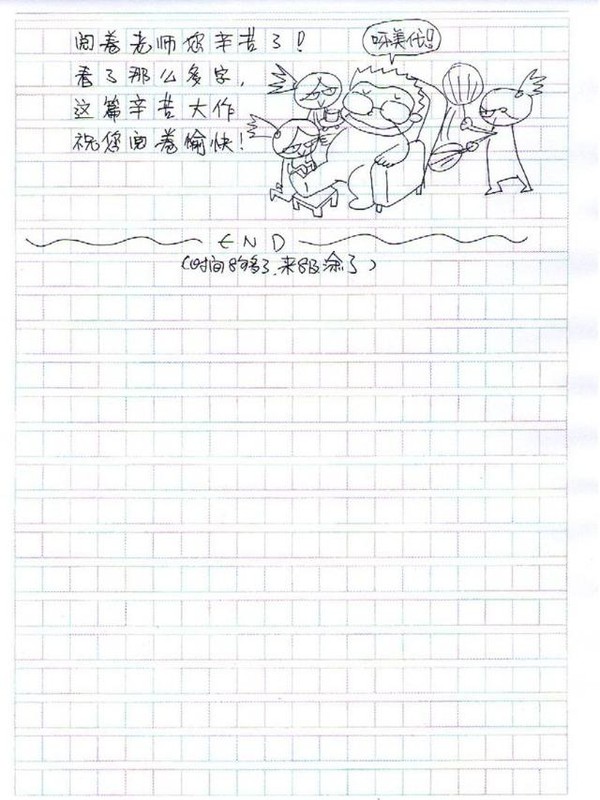 阅卷老师您辛苦了!
看了那么多字,
这篇辛苦大作
祝您阅卷愉快!
呀美代!!
END
(时间多了.来涂了)